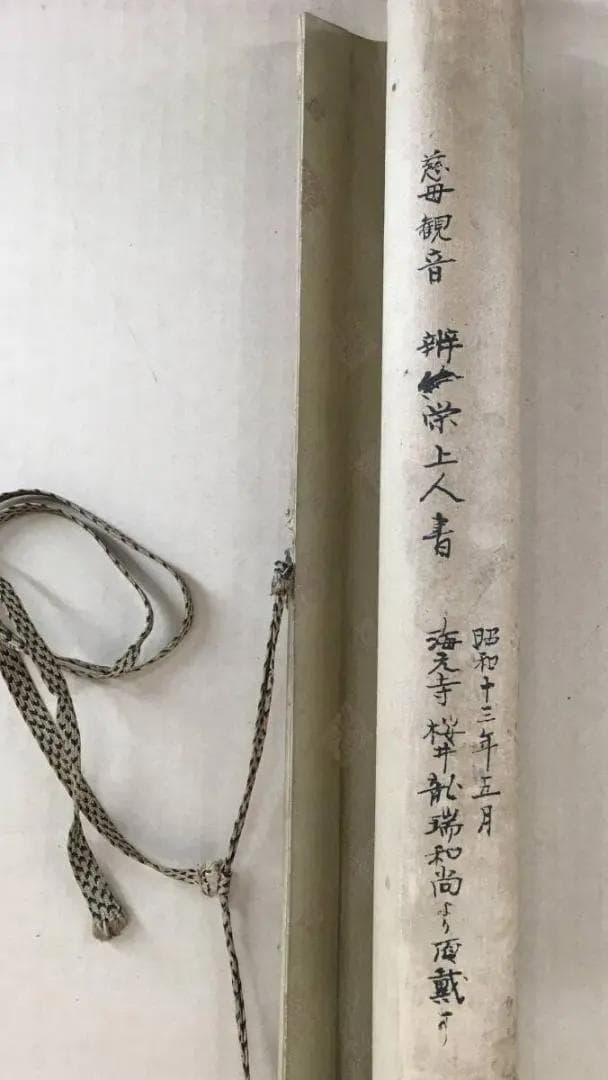 慈母観音 辨栄上人書
昭和十三年五月
海元寺 桜井龍瑞和尚より頂戴す